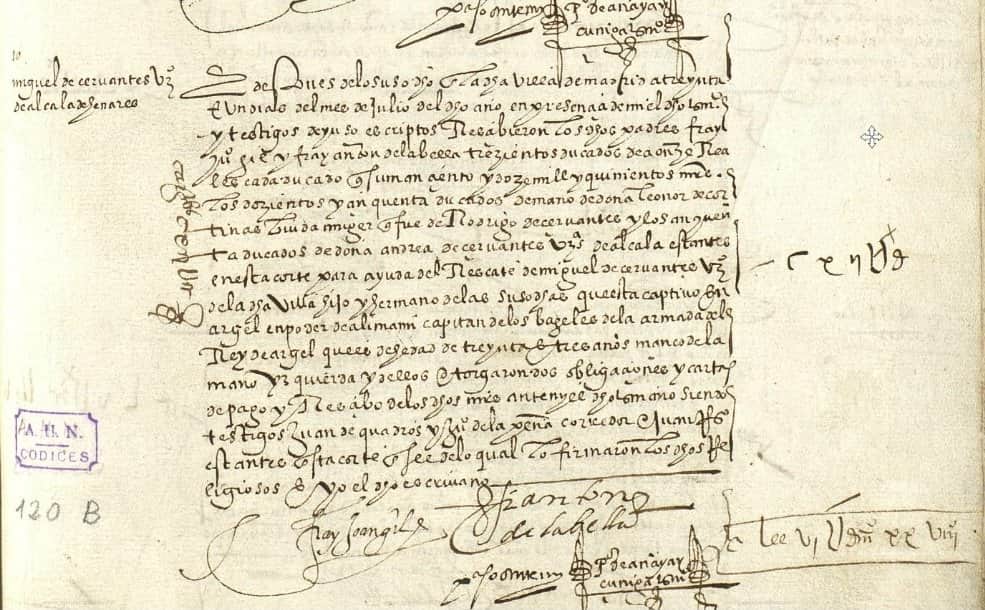 paso ante mi P.º de anaya y
cuniga s.no
10.
miguel de cervantes vz.º
de alcala de henares
Despues de lo susodho en la dha villa de madrid a treynta
E un dias del mes de Julio del dho año en presençia de mi el dho s.no
y testigos de yuso escriptos Resçibieron los dhos padres fray
Ju.º gil y fray anton de la bella trezientos ducados de a onze Rea
les cada ducado q suman çiento y doze mill y quinientos mrs.
los dozientos y çinquenta ducados de mano de doña leonor de cor
tinas biuda muger q fue de Rodrigo de cervantes y los çinquen
ta ducados de doña andrea de cervantes vz.as de alcala estantes
en esta corte para ayuda del Rescate de miguel de cervantes vz.º
de la dha villa hijo y hermano de las susodhas que esta captivo en
argel en poder de alimami capitan de los bageles de la armada del
Rey de argel que es de hedad de treynta E tres años manco de la
mano yzquierda y dellos otorgaron dos obligaçiones y cartas
de pago y Resçibo de los dhos mrs ante my el dho s.no siendo
testigos Juan de quadros y Ju.º de la peña corredor e Juan
estantes en esta corte en fee de lo qual lo firmaron los dhos Re
ligiosos E yo el dho escrivano
fray Joan gil
fr anton
de la bella
paso ante mi P.º de anaya y
cuniga s.no
c x ii U d
A. H. N.
CODICES
120 B